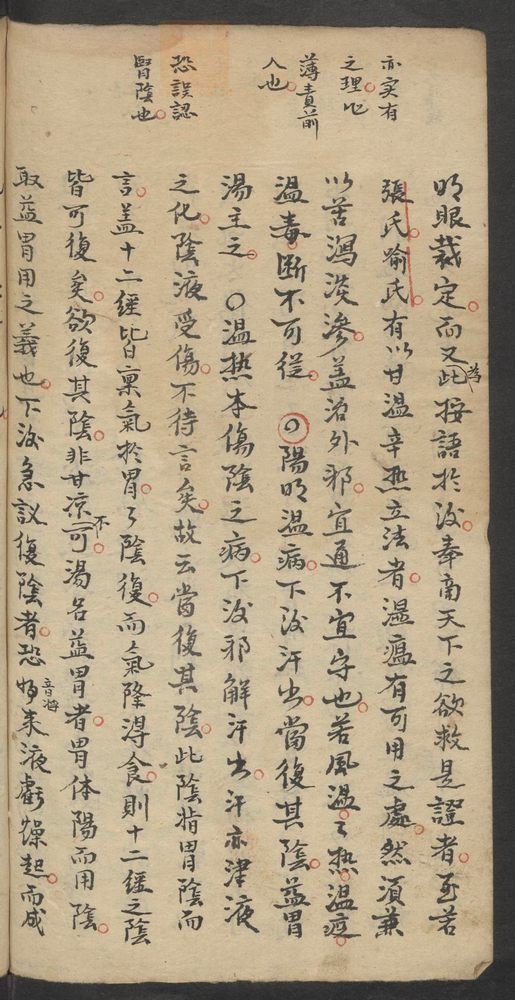 亦实有
之理。非
薄責前
人也。
恐誤認
腎陰也。
明眼裁定。而又為此按語於後。奉商天下之欲救是證者。至若
張氏喻氏。有以甘溫辛热立法者。溫瘟有可用之處。然須兼
以苦瀉淡滲。盖治外邪。宜通不宜守也。若風溫。溫热。溫疫。
溫毒。断不可從。
○陽明溫病。下後汗出。當復其陰。益胃
湯主之。
○溫热本傷陰之病。下後邪解汗出。汗亦津液
之化。陰液受傷。不待言矣。故云當復其陰。此陰指胃陰而
言。盖十二經皆稟氣於胃。胃陰復。而氣降得食。則十二經之陰
皆可復矣。欲復其陰。非甘凉不可。湯名益胃者。胃体陽而用陰。
取益胃用之義也。下後急議復陰者。恐將來液虧燥起。而成